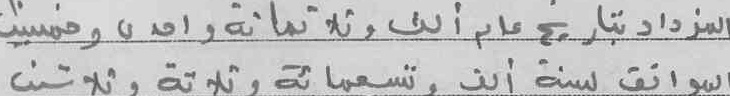 المزداد بتاريخ عام ألف وثلاثمائة واحدى وخمسين
الموافق لسنة ألف وتسعمائة وثلاثة وثلاثين